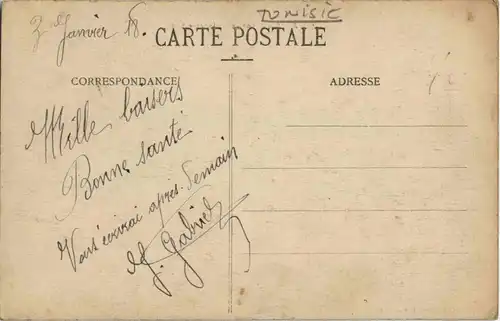 TUNISIE
3 Janvier 18.
CARTE POSTALE
CORRESPONDANCE
ADRESSE
Mille baisers
Bonne santé
Vous écrirai après-demain
J. Gabriel